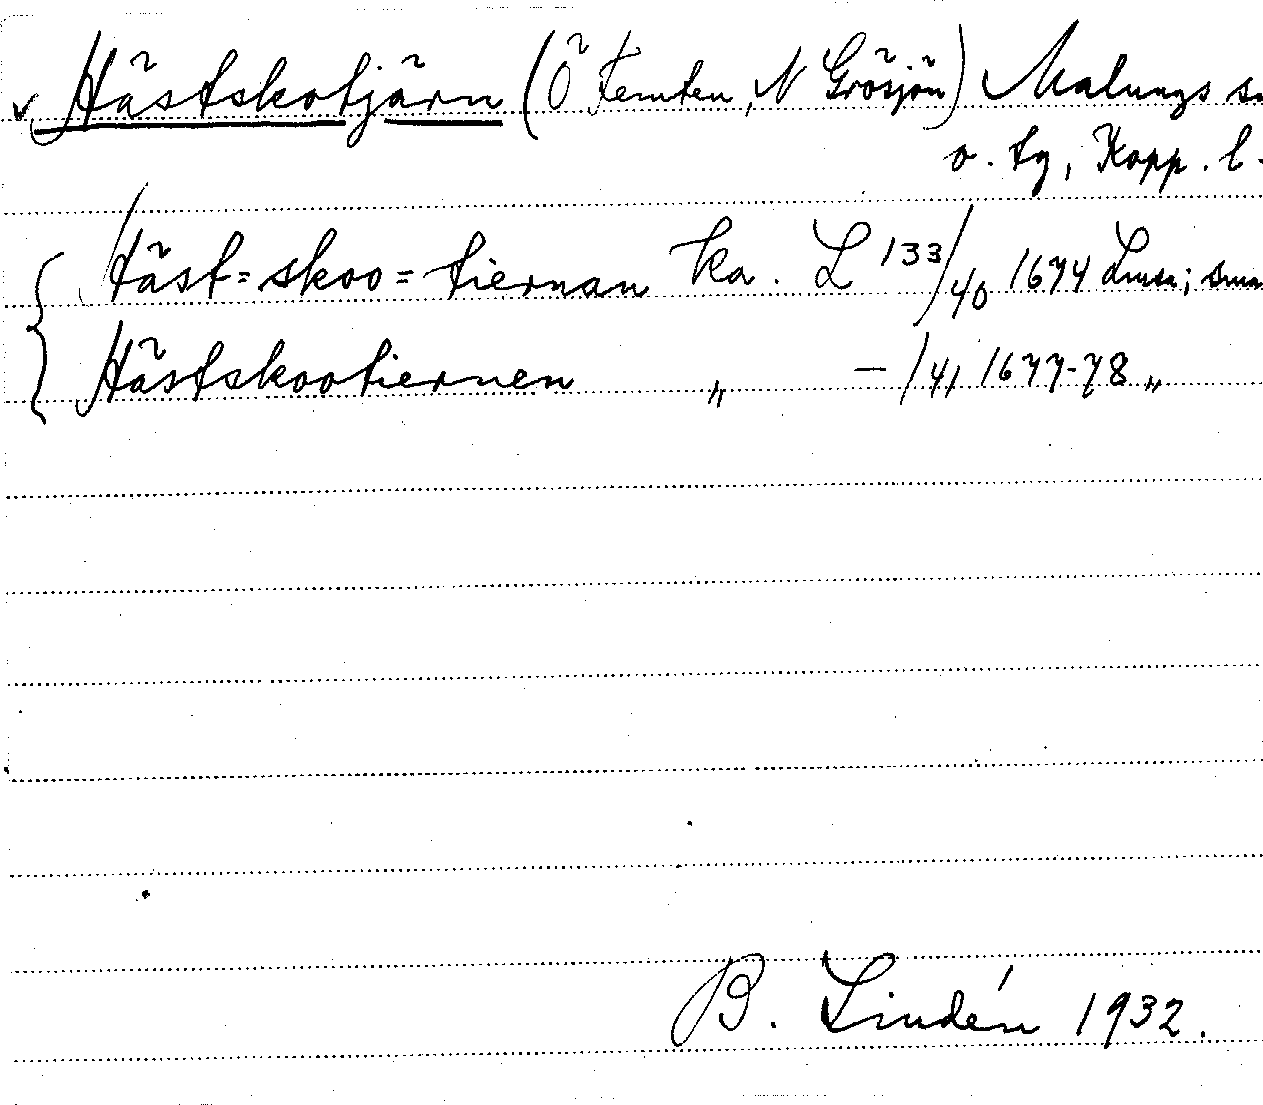 Hästskotjärn (Ö Femten, N Grösjön) Malungs s
o. tg, Kopp. l.
Häst=skoo=tiernan ka. L 133/40 1674 Lmsa; sma
Hästskootiernen „ – /41 1677-78 „
B. Lindén 1932.